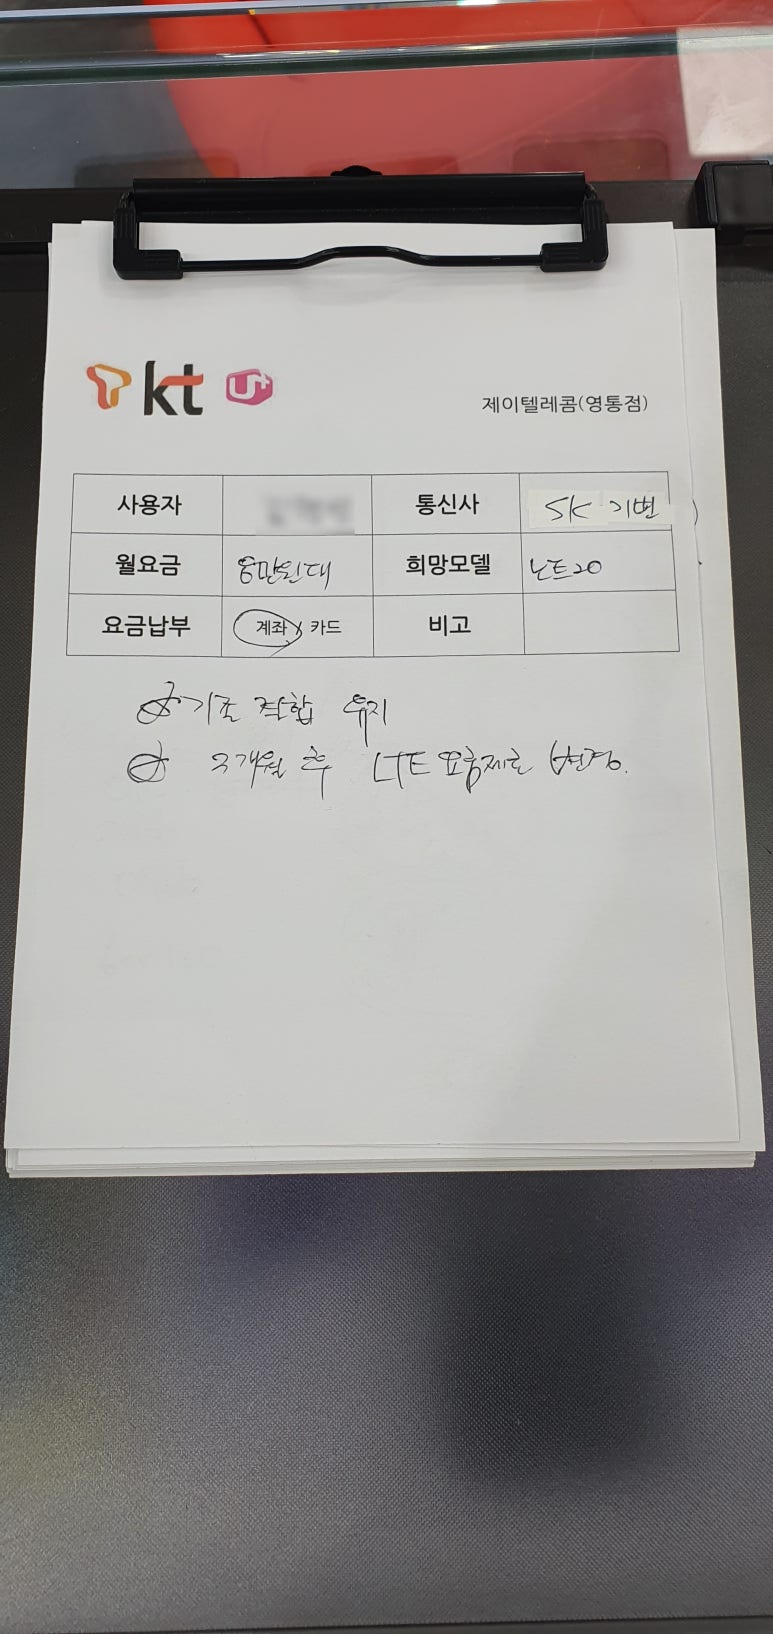 T kt U+
제이텔레콤(영통점)
사용자 통신사 SK 기변
월요금 8만원대 희망모델 노트20
요금납부 계좌 / 카드 비고
기존 결합 유지
3개월 후 LTE 요금제로 변경.